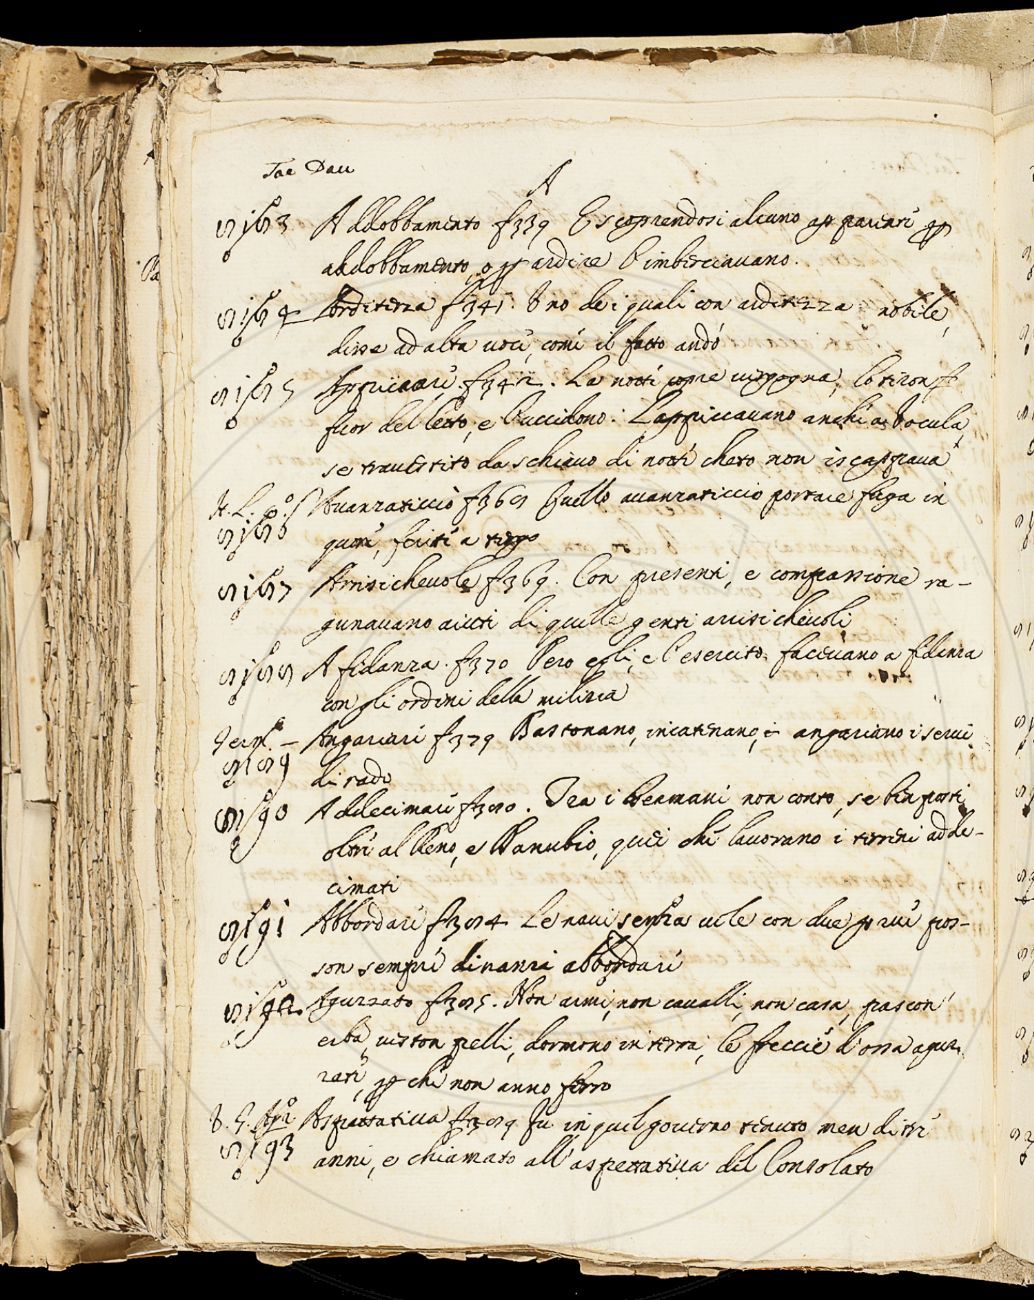 Tac Dau
A
8183 Addobbamento f339 E scoprendosi alcuno apparare p
addobbamento, o p ardire l'imberciavano.
8184 Arditezza f341 Uno de i quali con arditezza nobile,
disse ad alta voce, come il fatto andò
8185 Appiccare f342. La notte come vergogna, lo tiron
fuor del letto, e l'uccidono. L'appiccavano anche a Vocula,
se travestito da schiavo di notte cheto non iscappava
8186 Avanzaticcio f361 Quello avanzaticcio portare fuga in
guerre, ferite a tergo
8187 Arrisichevole f369. Con presenti, e compassione ra-
gunavano aiuti di quelle genti arrisichevoli
8188 A fidanza. f370 Pero egli, e l'esercito facevano a fidanza
con gli ordini della milizia
8189 Angariare f379 Bastonano, incatenano, e angariano i servi
di rado
8190 Addecimare f380. Tra i Germani non conto, se ben posti
oltre al Reno, e Danubio, quei che lavorano i terreni adde-
cimati
8191 Abbordare f384 Le navi senza vele con due prue pos-
son sempre dinanzi abbordare
8192. Aguzzato f385. Non armi, non cavalli, non casa, pascon
erba, veston pelli, dormono in terra, le freccie d'ossa aguz-
zate, p che non anno ferro
8193 Aspettativa f389 Fu in quel governo tenuto men di tre
anni, e chiamato all'aspettativa del Consolato